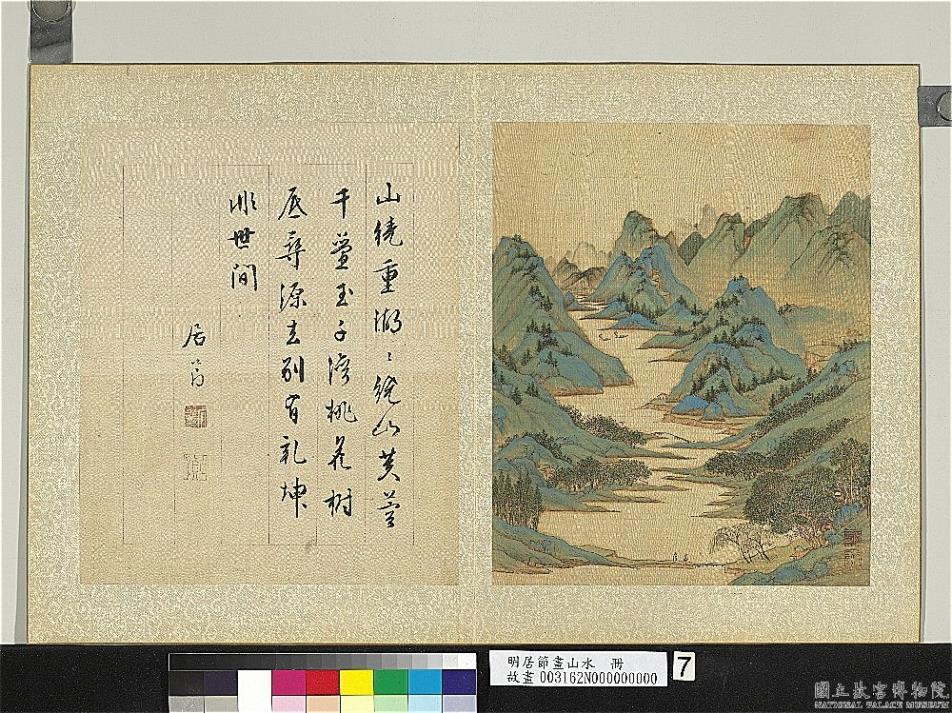 山繞重湖〻繞山芙蓉
千疊玉子灣桃花樹
底尋源去別有乾坤
非世間
居節
明居節畫山水　冊
故畫003162N000000000
7
國立故宮博物院
NATIONAL PALACE MUSEUM